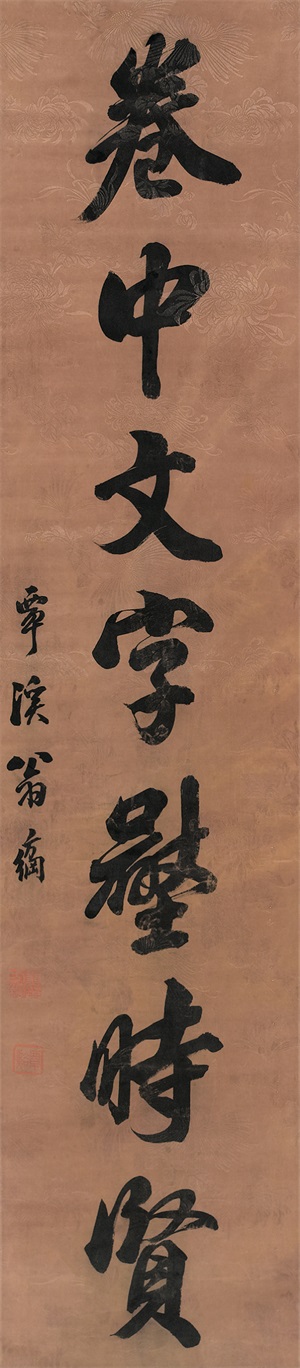 卷中文字壓時賢
覃溪翁方綱